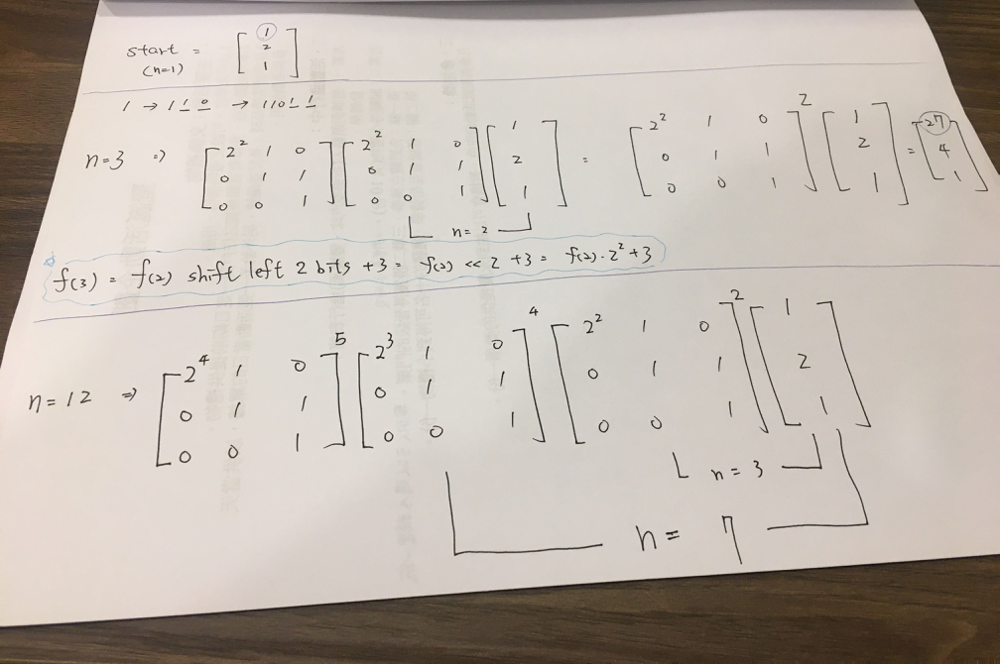 start = [ 1 2 1 ]
(n=1)
1 → 110 → 11011
n=3 ⇒ [ 2² 1 0 / 0 1 1 / 0 0 1 ] [ 2² 1 0 / 0 1 1 / 0 0 1 ] [ 1 / 2 / 1 ] = [ 2² 1 0 / 0 1 1 / 0 0 1 ]² [ 1 / 2 / 1 ] = [ 27 / 4 / 1 ]
n=2
f(3) = f(2) shift left 2 bits +3 = f(2) << 2 +3 = f(2)·2²+3
n=12 ⇒ [ 2⁴ 1 0 / 0 1 1 / 0 0 1 ]⁵ [ 2³ 1 0 / 0 1 1 / 0 0 1 ]⁴ [ 2² 1 0 / 0 1 1 / 0 0 1 ]² [ 1 / 2 / 1 ]
n=3
n= 7